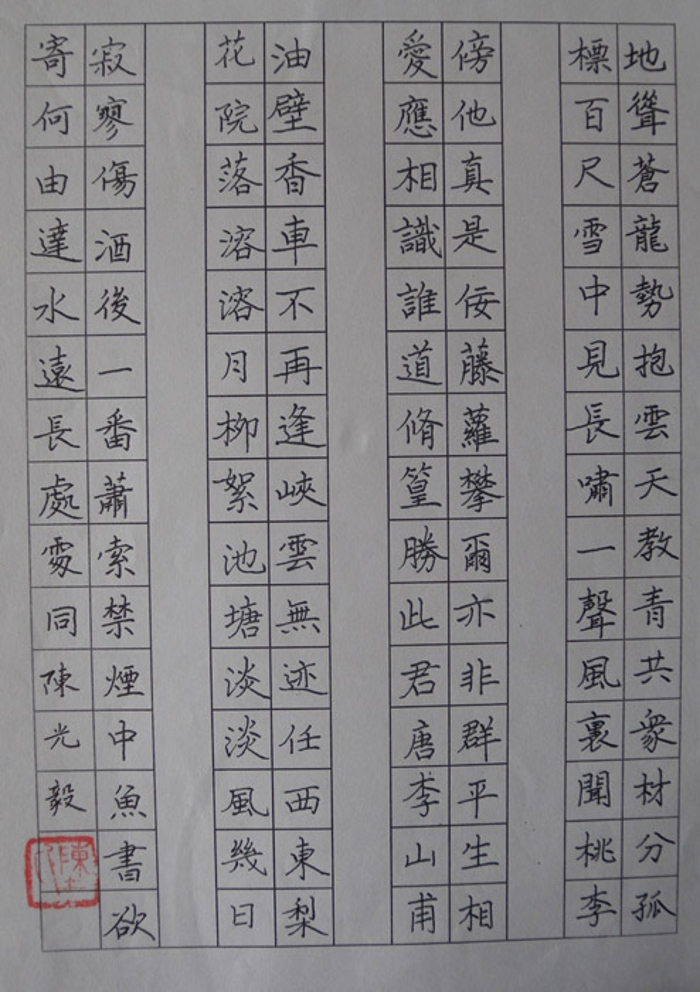 地聳蒼龍勢抱雲天教青共衆材分孤
標百尺雪中見長嘯一聲風裏聞桃李
傍他真是佞藤蘿攀爾亦非群平生相
愛應相識誰道脩篁勝此君唐李山甫
油壁香車不再逢峽雲無迹任西東梨
花院落溶溶月柳絮池塘淡淡風幾日
寂寥傷酒後一番蕭索禁煙中魚書欲
寄何由達水遠長處處同陳光毅